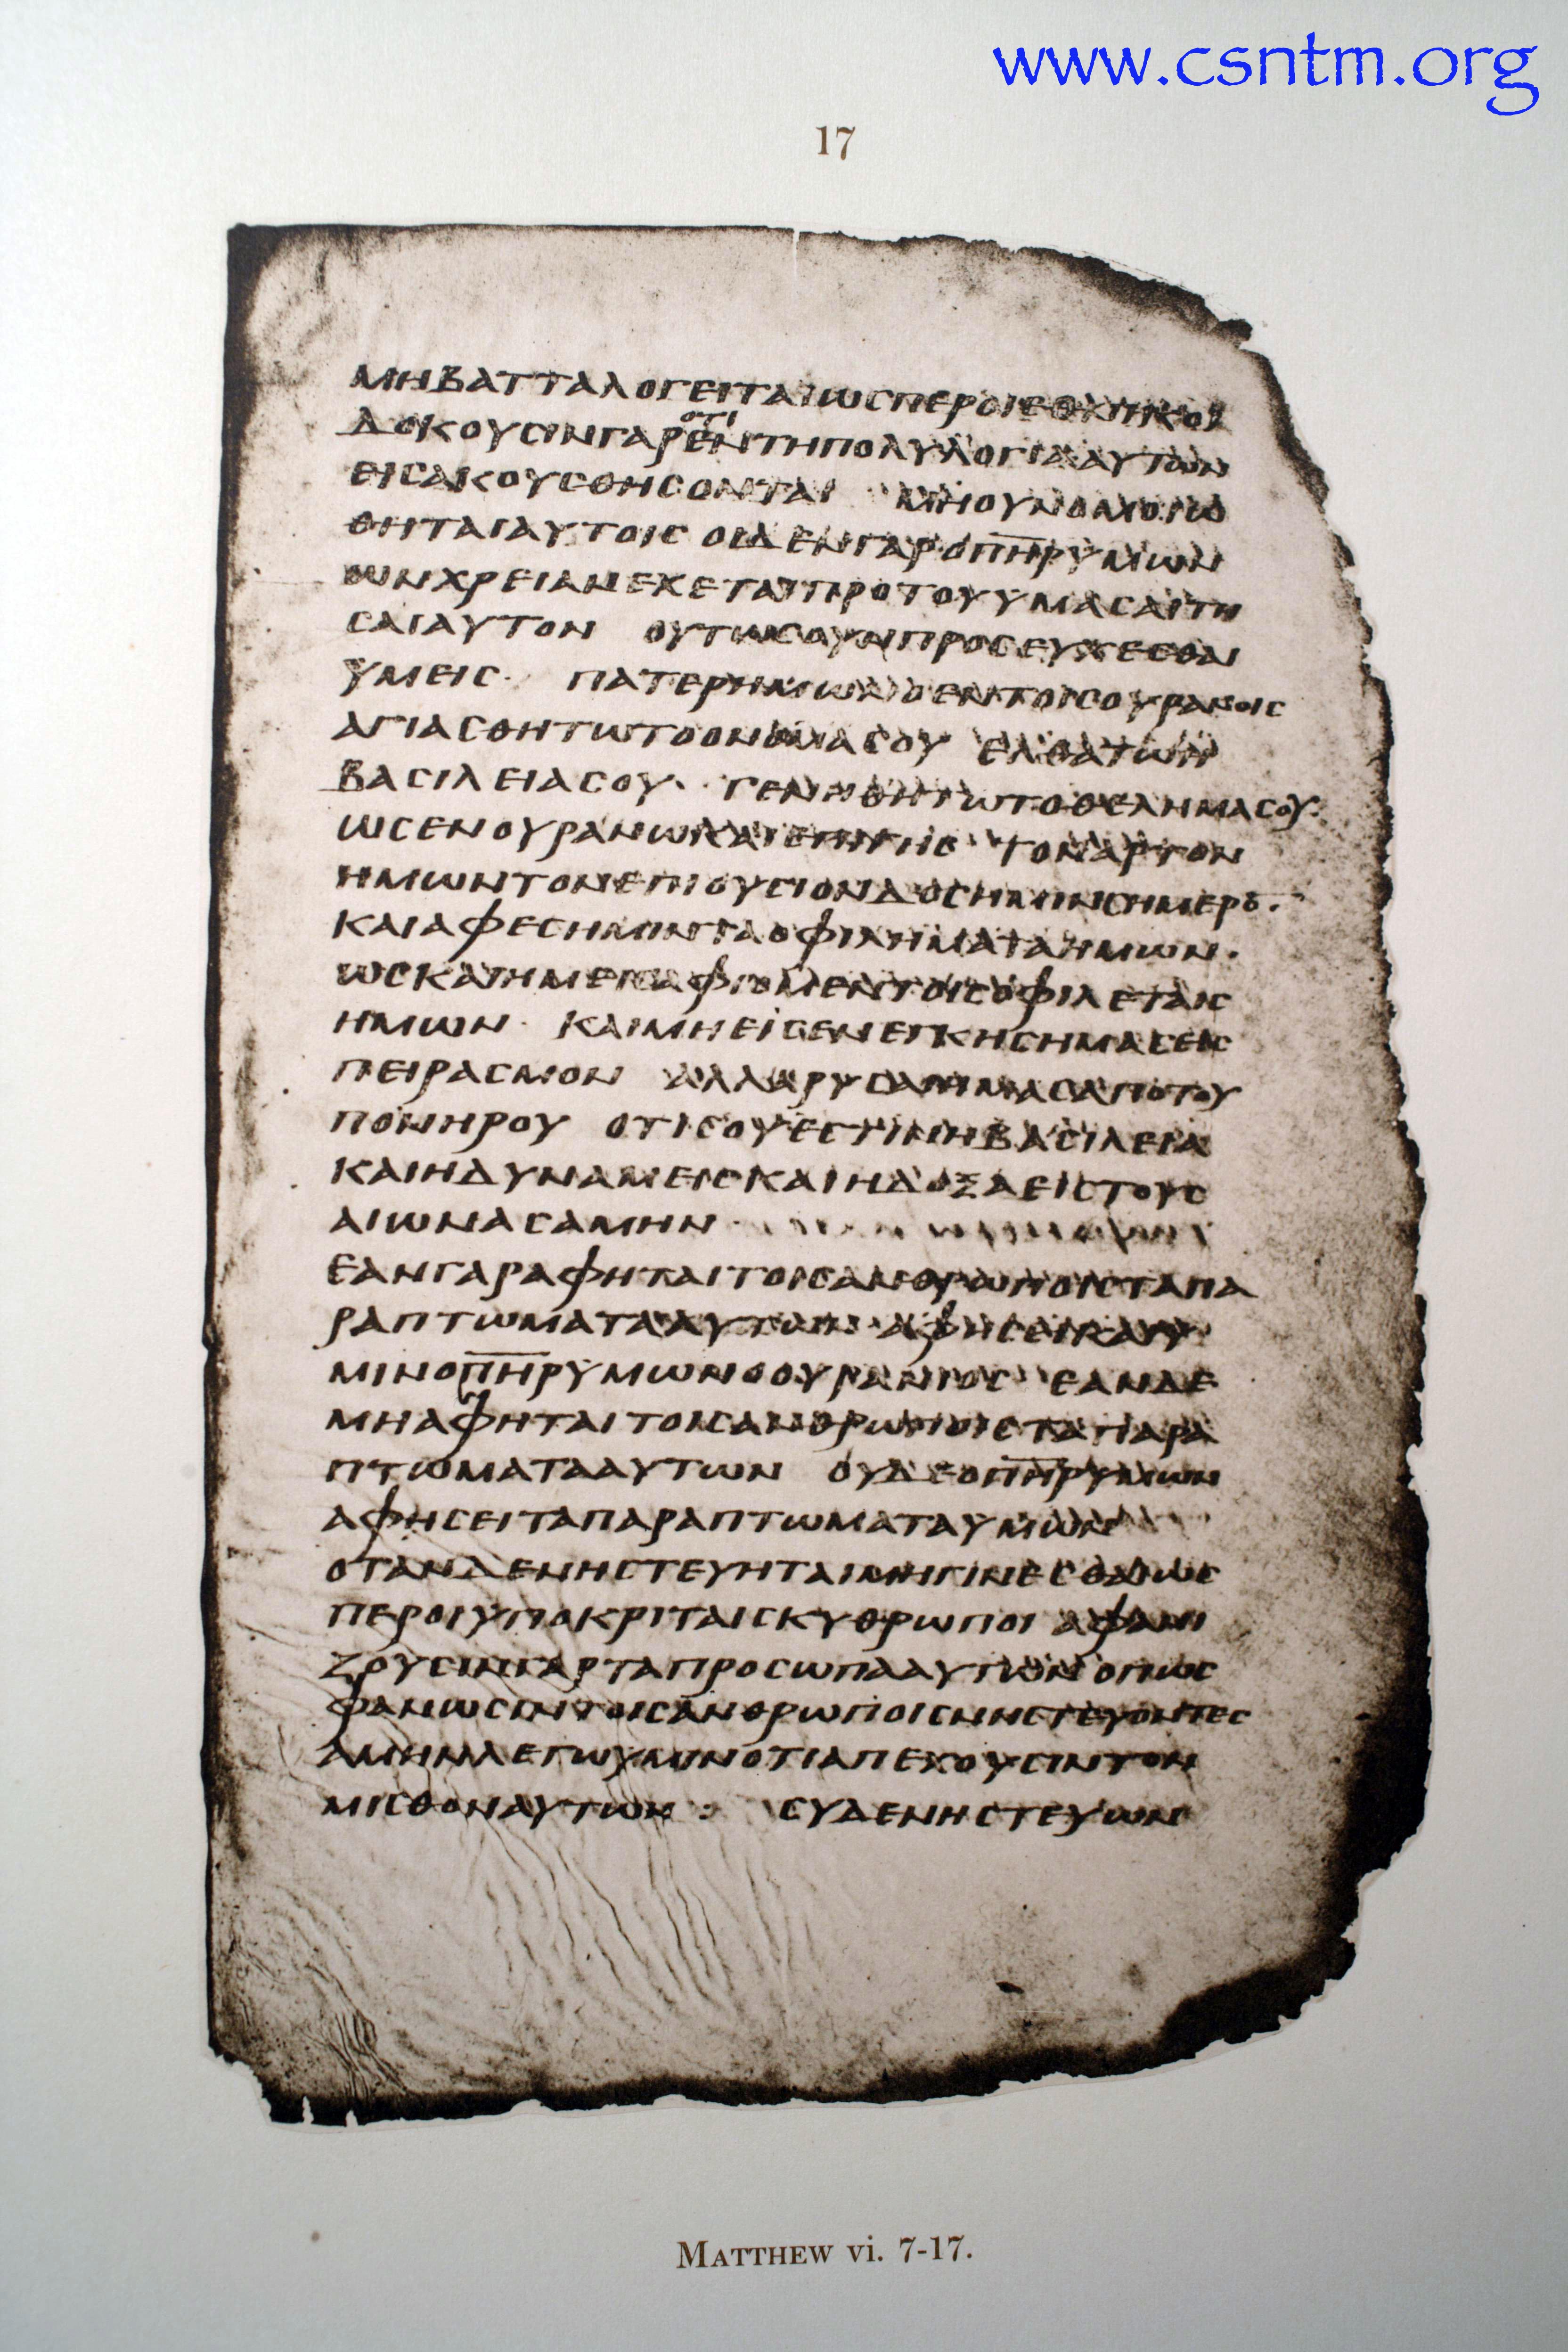 www.csntm.org
17
ΜΗΒΑΤΤΑΛΟΓΕΙΤΑΙΩCΠΕΡΟΙΕΘΝΙΚΟΙ
ΟΤΙ
ΔΟΚΟΥCΙΝΓΑΡΕΝΤΗΠΟΛΥΛΟΓΙΑΑΥΤΩΝ
ΕΙCΑΚΟΥCΘΗCΟΝΤΑΙ ΜΗΟΥΝΟΜΟΙΩ
ΘΗΤΑΙΑΥΤΟΙC ΟΙΔΕΝΓΑΡΟΠ̅Η̅Ρ̅ΥΜΩΝ
ΩΝΧΡΕΙΑΝΕΧΕΤΑΙΠΡΟΤΟΥΥΜΑCΑΙΤΗ
CΑΙΑΥΤΟΝ ΟΥΤΩCΟΥΝΠΡΟCΕΥΧΕCΘΑΙ
ΥΜΕΙC· ΠΑΤΕΡΗΜΩΝΟΕΝΤΟΙCΟΥΡΑΝΟΙC
ΑΓΙΑCΘΗΤΩΤΟΟΝΟΜΑCΟΥ ΕΛΘΑΤΩΗ
ΒΑCΙΛΕΙΑCΟΥ· ΓΕΝΗΘΗΤΩΤΟΘΕΛΗΜΑCΟΥ·
ΩCΕΝΟΥΡΑΝΩΚΑΙΕΠΙΓΗC· ΤΟΝΑΡΤΟΝ
ΗΜΩΝΤΟΝΕΠΙΟΥCΙΟΝΔΟCΗΜΙΝCΗΜΕΡΟ̅·
ΚΑΙΑΦΕCΗΜΙΝΤΑΟΦΙΛΗΜΑΤΑΗΜΩΝ·
ΩCΚΑΙΗΜΕΙCΑΦΙΟΜΕΝΤΟΙCΟΦΙΛΕΤΑΙC
ΗΜΩΝ· ΚΑΙΜΗΕΙCΕΝΕΓΚΗCΗΜΑCΕΙC
ΠΕΙΡΑCΜΟΝ ΑΛΛΑΡΥCΑΙΗΜΑCΑΠΟΤΟΥ
ΠΟΝΗΡΟΥ ΟΤΙCΟΥΕCΤΙΝΗΒΑCΙΛΕΙΑ
ΚΑΙΗΔΥΝΑΜΕΙCΚΑΙΗΔΟΞΑΕΙCΤΟΥC
ΑΙΩΝΑCΑΜΗΝ·
ΕΑΝΓΑΡΑΦΗΤΑΙΤΟΙCΑΝΘΡΩΠΟΙCΤΑΠΑ
ΡΑΠΤΩΜΑΤΑΑΥΤΩΝ·ΑΦΗCΕΙΚΑΙΥ
ΜΙΝΟΠ̅Η̅Ρ̅ΥΜΩΝΟΟΥΡΑΝΙΟC ΕΑΝΔΕ
ΜΗΑΦΗΤΑΙΤΟΙCΑΝΘΡΩΠΟΙCΤΑΠΑΡΑ
ΠΤΩΜΑΤΑΑΥΤΩΝ ΟΥΔΕΟΠ̅Η̅Ρ̅ΥΜΩΝ
ΑΦΗCΕΙΤΑΠΑΡΑΠΤΩΜΑΤΑΥΜΩΝ
ΟΤΑΝΔΕΝΗCΤΕΥΗΤΑΙΜΗΓΙΝΕCΘΑΙΩC
ΠΕΡΟΙΥΠΟΚΡΙΤΑΙCΚΥΘΡΩΠΟΙ ΑΦΑΝΙ
ΖΟΥCΙΝΓΑΡΤΑΠΡΟCΩΠΑΑΥΤΩΝΟΠΩC
ΦΑΝΩCΙΝΤΟΙCΑΝΘΡΩΠΟΙCΝΗCΤΕΥΟΝΤΕC
ΑΜΗΝΛΕΓΩΥΜΙΝΟΤΙΑΠΕΧΟΥCΙΝΤΟΝ
ΜΙCΘΟΝΑΥΤΩΝ: CΥΔΕΝΗCΤΕΥΩΝ
MATTHEW vi. 7-17.